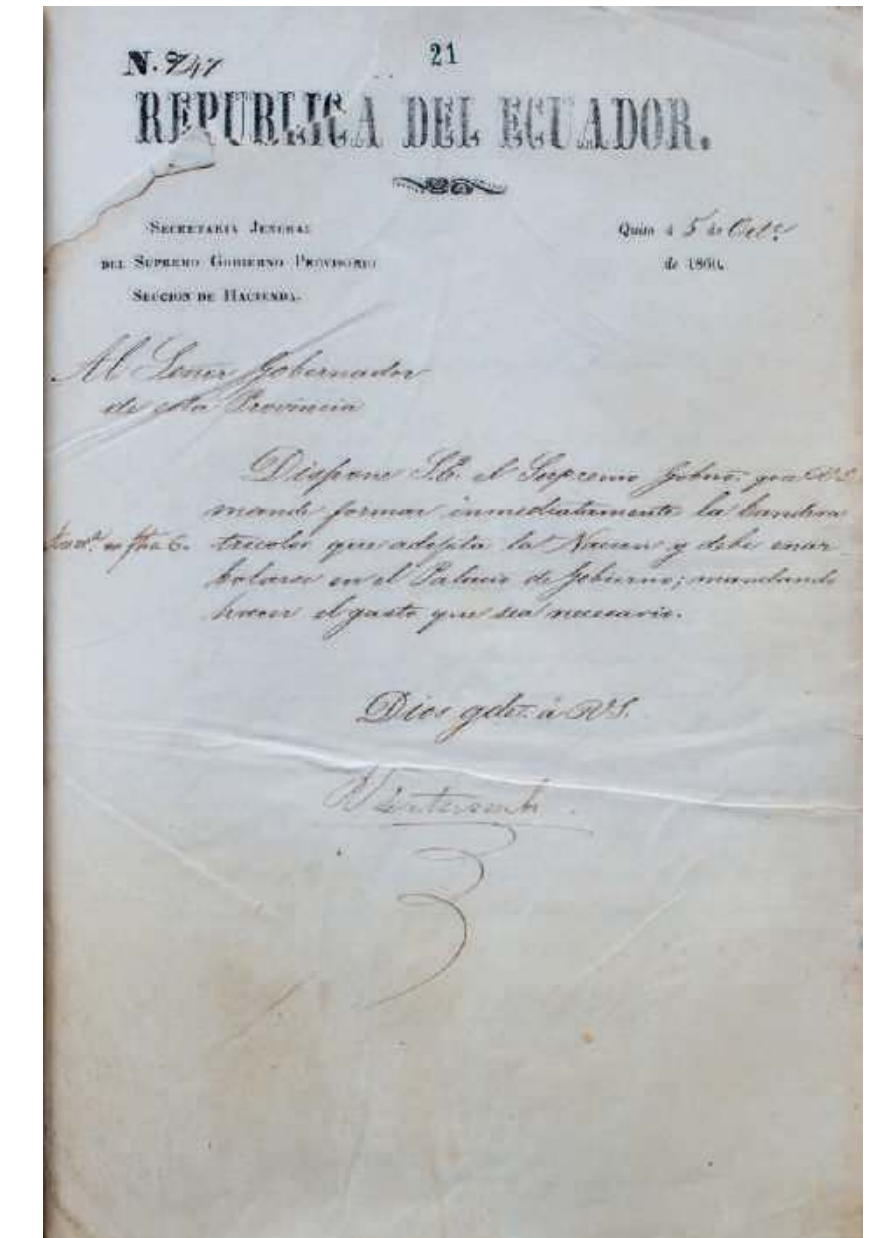 21
N. 747
REPUBLICA DEL ECUADOR.
SECRETARIA JENERAL
DEL SUPREMO GOBIERNO PROVISORIO
SECCION DE HACIENDA.
Quito á 5 de Oct.e
de 1860.
Al Señor Gobernador
de esta Provincia
Dispone S.E. el Supremo Gobno. que VS.
mande formar inmediatamente la bandera
tricolor que adopta la Nacion y debe enar
bolarse en el Palacio de Gobierno; mandando
hacer el gasto que sea necesario.
en fha 6.
Dios gde. á VS.